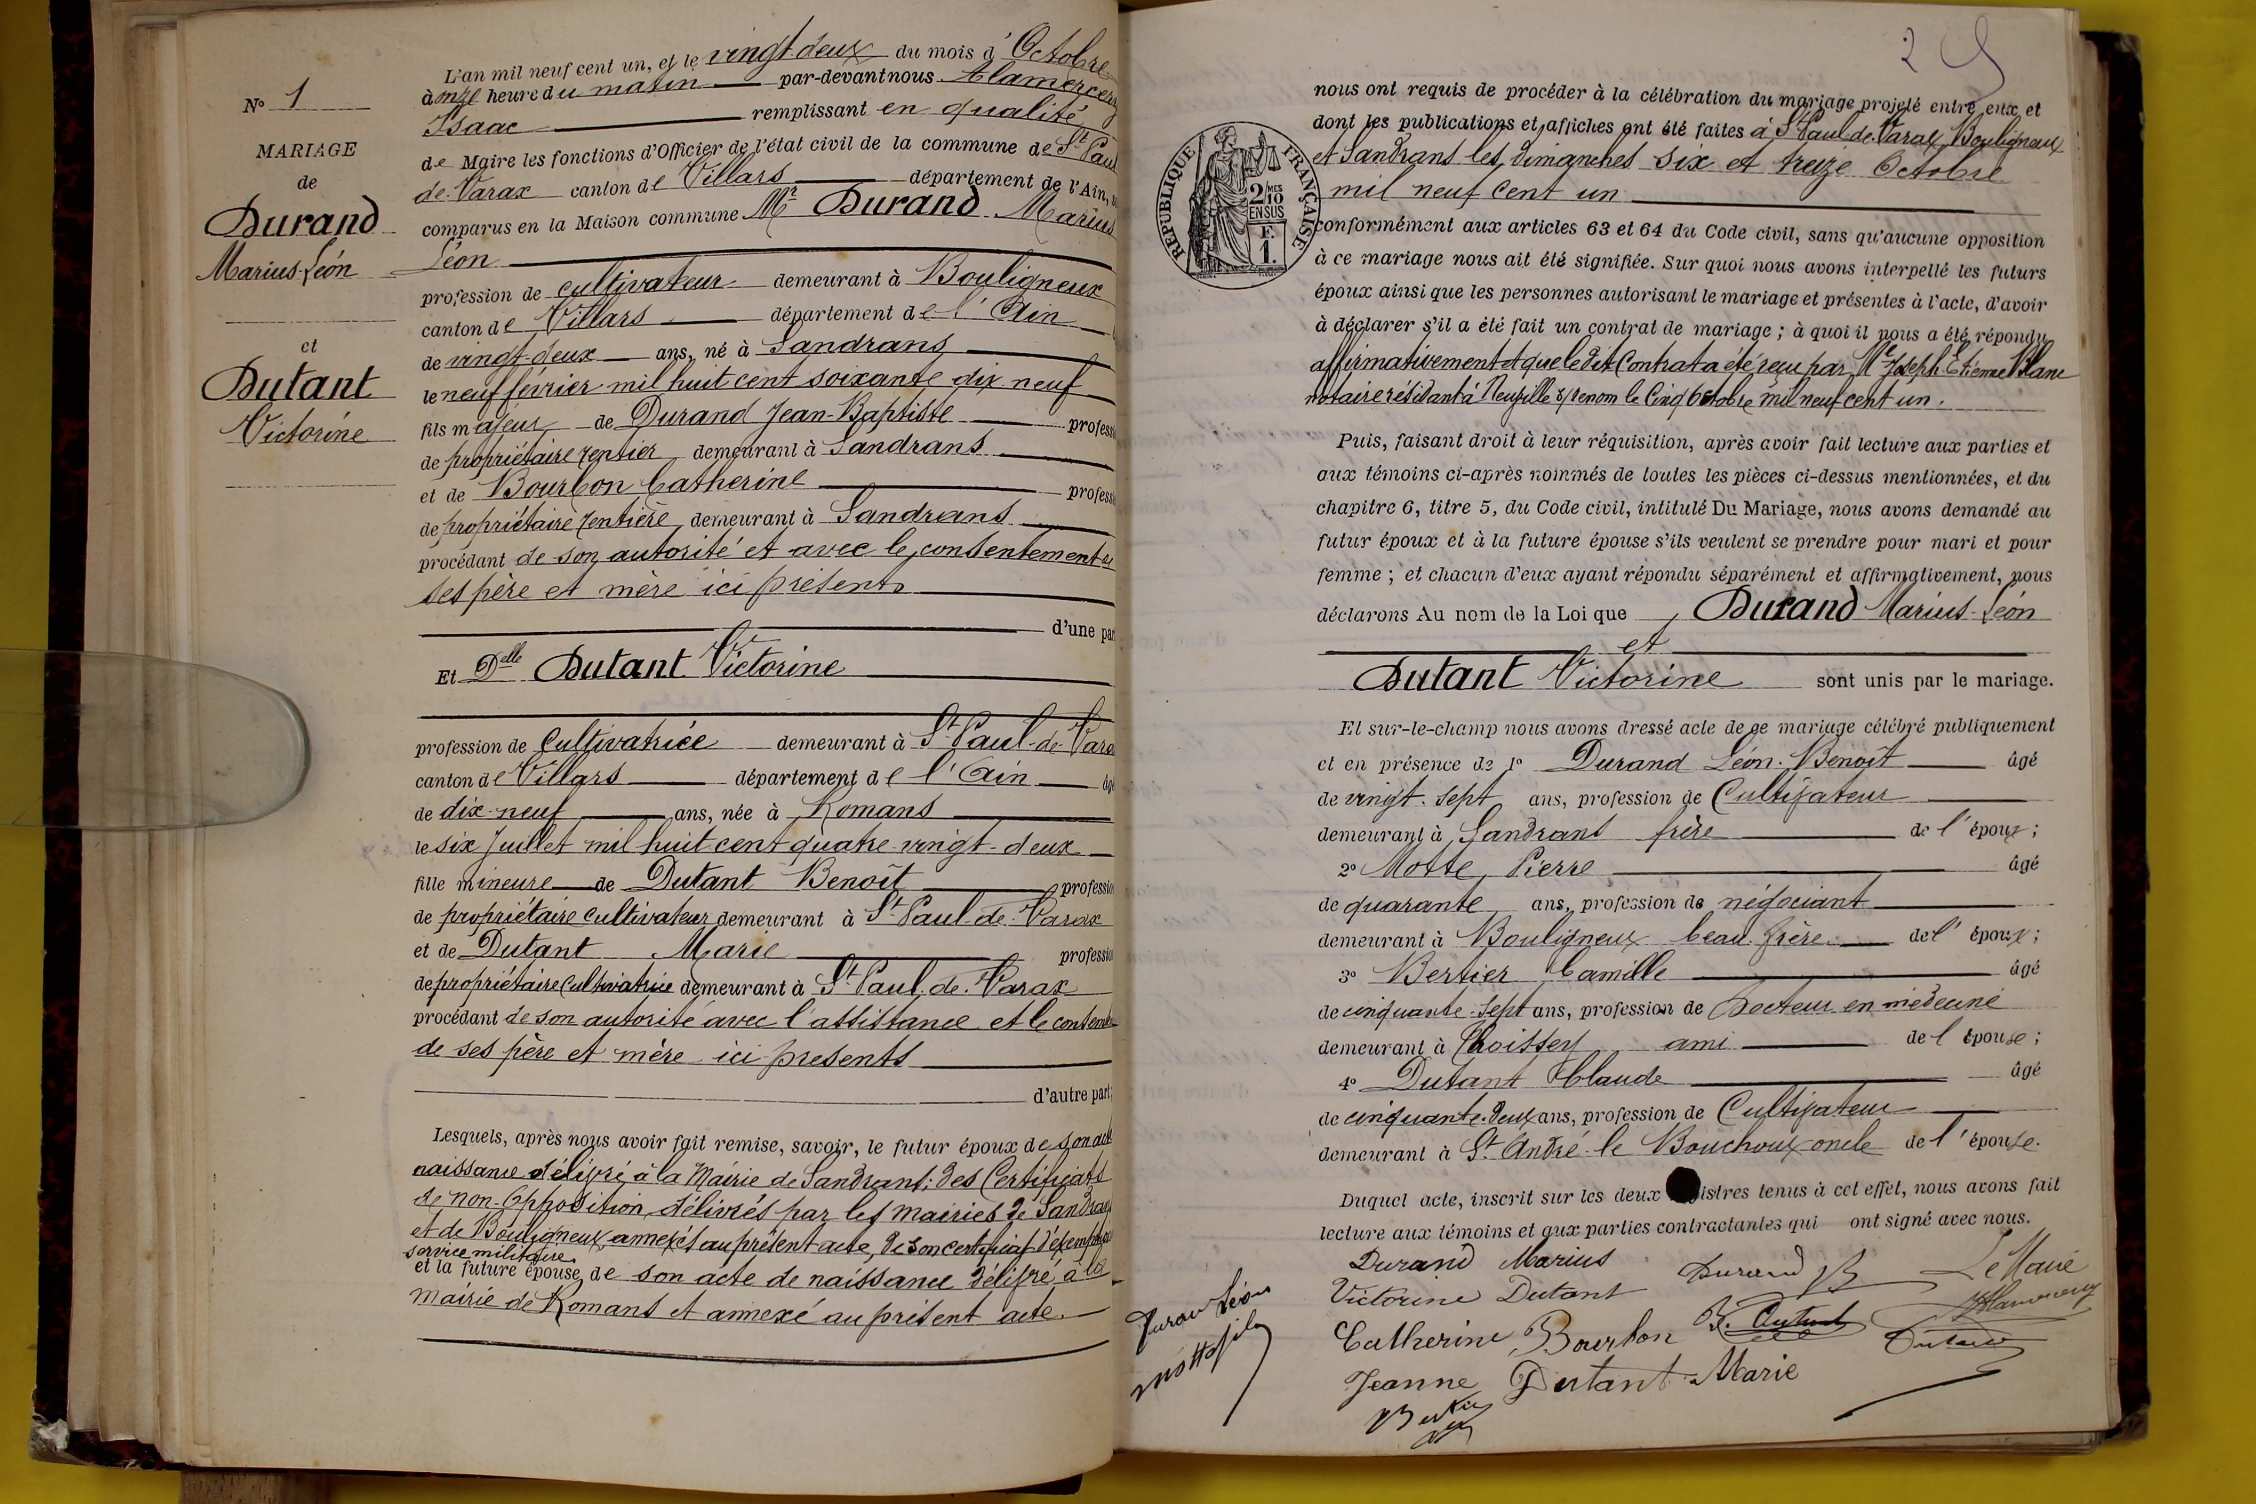 N° 1
MARIAGE
de
Durand
Marius-Léon
et
Dutant
Victorine
L'an mil neuf cent un, et le vingt-deux du mois d'Octobre
à onze heure du matin par-devant nous Clamercery
Isaac remplissant en qualité
de Maire les fonctions d'Officier de l'état civil de la commune de St Paul
de-Varax canton de Villars département de l'Ain,
comparus en la Maison commune Mr Durand Marius
Léon
profession de cultivateur demeurant à Bouligneux
canton de Villars département de l'Ain
de vingt-deux ans, né à Sandrans
le neuf février mil huit cent soixante dix neuf
fils majeur de Durand Jean-Baptiste profess
de propriétaire rentier demeurant à Sandrans
et de Bourbon Catherine profess
de propriétaire rentière demeurant à Sandrans
procédant de son autorité et avec le consentement de
ses père et mère ici présents
d'une par
Et Delle Dutant Victorine
profession de Cultivatrice demeurant à St Paul-de-Vara
canton de Villars département de l'Ain âgé
de dix-neuf ans, née à Romans
le six Juillet mil huit cent quatre vingt-deux
fille mineure de Dutant Benoît profession
de propriétaire cultivateur demeurant à St Paul-de-Varax
et de Dutant Marie profession
de propriétaire Cultivatrice demeurant à St Paul-de-Varax
procédant de son autorité avec l'assistance et le consente
de ses père et mère ici présents
d'autre part;
Lesquels, après nous avoir fait remise, savoir, le futur époux de son acte
naissance délivré à la Mairie de Sandrans; des Certificats
de non-Opposition délivrés par les mairies de Sandrans
et de Bouligneux annexés au présent acte, de son certificat d'exemption
service militaire
et la future épouse de son acte de naissance délivré à la
mairie de Romans et annexé au présent acte.
2
REPUBLIQUE FRANÇAISE
2 MES
10
EN SUS
F.
1.
nous ont requis de procéder à la célébration du mariage projeté entre eux et
dont les publications et affiches ont été faites à St Paul-de-Varax, Bouligneux
et Sandrans les dimanches six et treize Octobre
mil neuf cent un
conformément aux articles 63 et 64 du Code civil, sans qu'aucune opposition
à ce mariage nous ait été signifiée. Sur quoi nous avons interpellé les futurs
époux ainsi que les personnes autorisant le mariage et présentes à l'acte, d'avoir
à déclarer s'il a été fait un contrat de mariage; à quoi il nous a été répondu
affirmativement et que le dit Contrat a été reçu par Me Joseph Etienne Blanc
notaire résidant à Neuville s/renom le Cinq Octobre mil neuf cent un.
Puis, faisant droit à leur réquisition, après avoir fait lecture aux parties et
aux témoins ci-après nommés de toutes les pièces ci-dessus mentionnées, et du
chapitre 6, titre 5, du Code civil, intitulé Du Mariage, nous avons demandé au
futur époux et à la future épouse s'ils veulent se prendre pour mari et pour
femme; et chacun d'eux ayant répondu séparément et affirmativement, nous
déclarons Au nom de la Loi que Durand Marius-Léon
et
Dutant Victorine sont unis par le mariage.
Et sur-le-champ nous avons dressé acte de ce mariage célébré publiquement
et en présence de 1° Durand Léon-Benoît âgé
de vingt-sept ans, profession de Cultivateur
demeurant à Sandrans frère de l'époux;
2° Motte Pierre âgé
de quarante ans, profession de négociant
demeurant à Bouligneux beau-frère de l'époux;
3° Bertier Camille âgé
de cinquante-sept ans, profession de Docteur en médecine
demeurant à Choissey ami de l'épouse;
4° Dutant Claude âgé
de cinquante-deux ans, profession de Cultivateur
demeurant à St André-le Bouchoux oncle de l'épouse.
Duquel acte, inscrit sur les deux istres tenus à cet effet, nous avons fait
lecture aux témoins et aux parties contractantes qui ont signé avec nous.
Durand Marius Durand JB Le Maire
Victorine Dutant
Catherine Bourbon B. Dutant Dutant
Jeanne Dutant Marie
Durand Léon